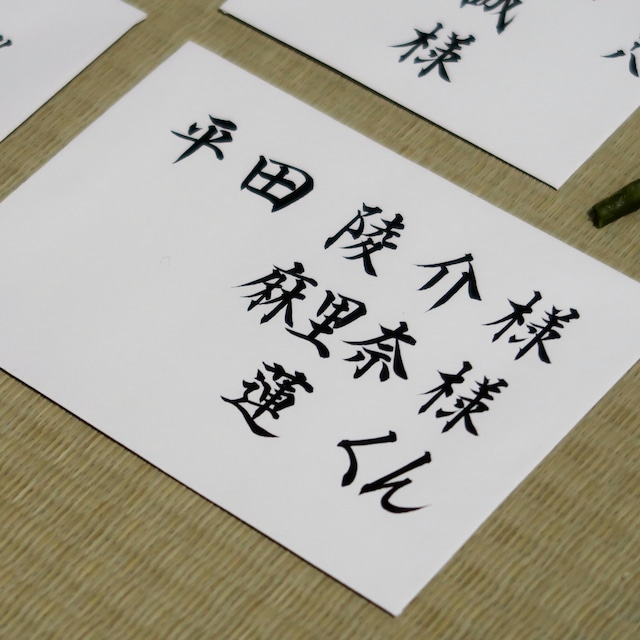 平田 陵介様
麻里奈様
蓮 くん
様